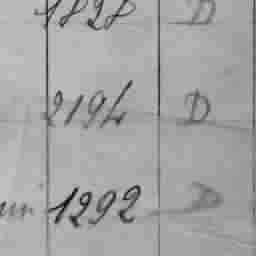 1828 D
2194 D
1292 D